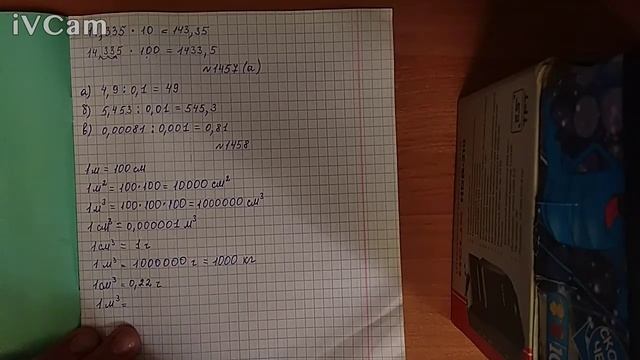 iVCam
14,335 · 10 = 143,35
14,335 · 100 = 1433,5
№1457(а)
а) 4,9 : 0,1 = 49
б) 5,453 : 0,01 = 545,3
в) 0,00081 : 0,001 = 0,81
№1458
1м = 100 см
1м² = 100·100 = 10000 см²
1м³ = 100·100·100 = 1000000 см³
1 см³ = 0,000001 м³
1см³ = 1г
1 м³ = 1000000 г = 1000 кг
1см³ = 0,22 г
1 м³ =